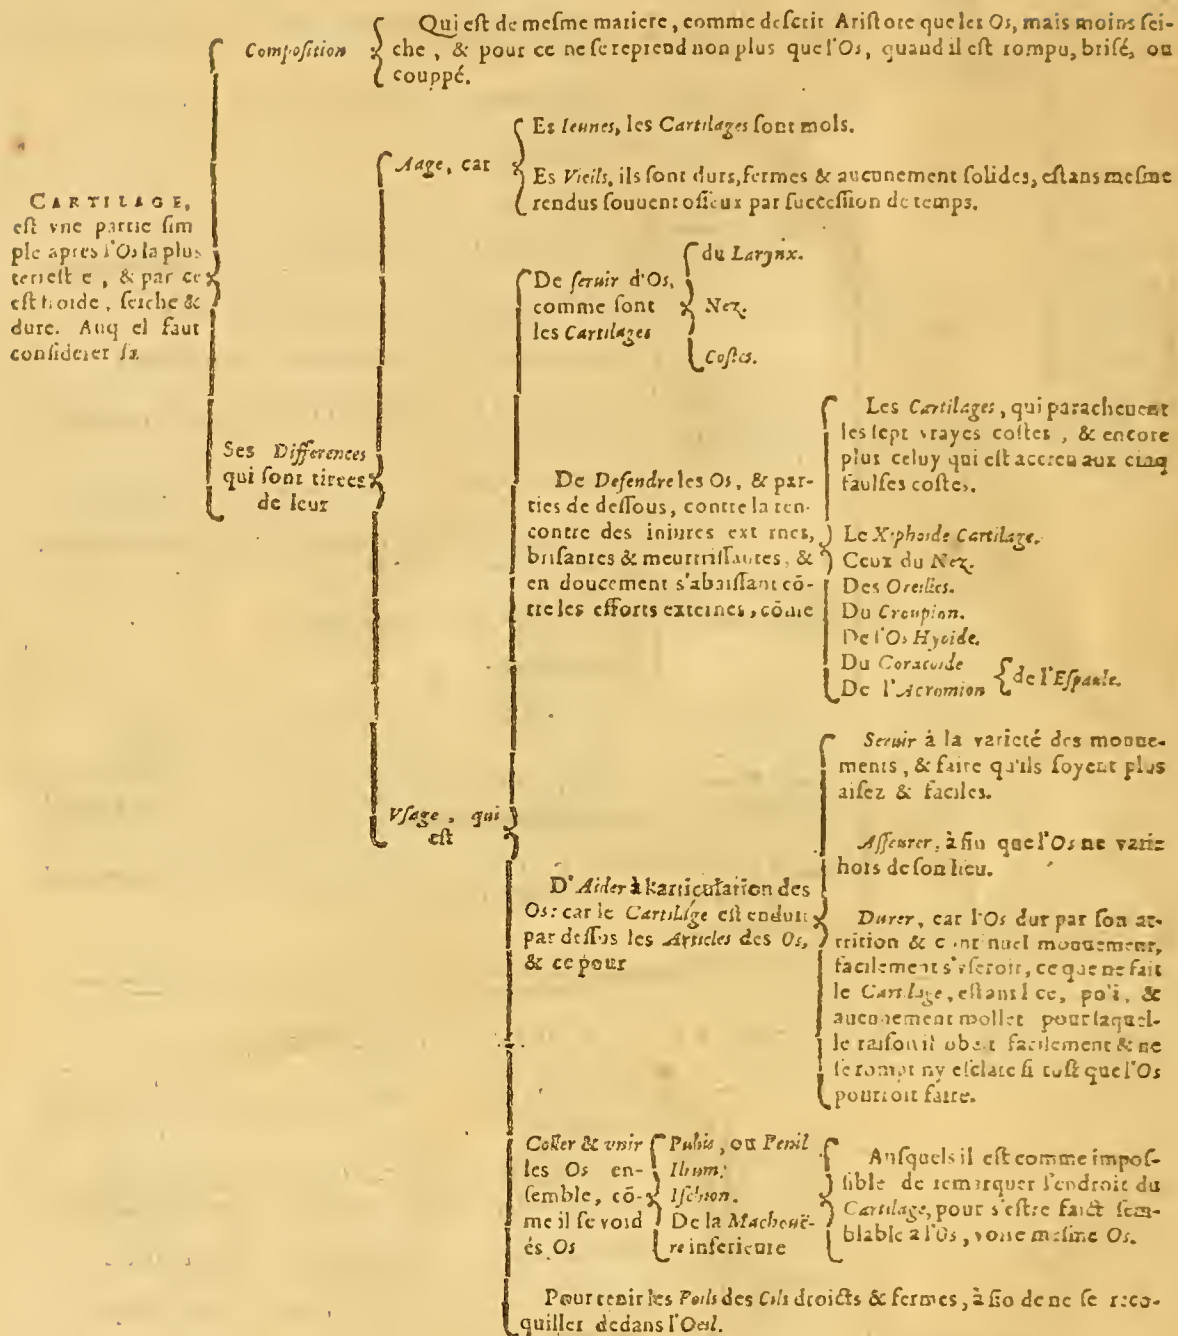 CARTILAGE,
eſt vne partie ſim
ple apres l'Os la plus
terreſt e, & par ce
eſt froide, ſeiche &
dure. Auq el faut
conſiderer ſa
Compoſition
Qui eſt de meſme matiere, comme deſcrit Ariſtote que les Os, mais moins ſei-
che, & pour ce ne ſe reprend non plus que l'Os, quand il eſt rompu, briſé, ou
couppé.
Ses Differences
qui ſont tirees
de leur
Aage, car
Es Ieunes, les Cartilages ſont mols.
Es Vieils, ils ſont durs, fermes & aucunement ſolides, eſtans meſme
rendus ſouuent oſſeux par ſucceſſion de temps.
Vſage, qui
eſt
De ſeruir d'Os,
comme ſont
les Cartilages
du Larynx.
Nez.
Coſtes.
De Defendre les Os, & par-
ties de deſſous, contre la ren-
contre des iniures ext rnes,
briſantes & meurtriſſantes, &
en doucement s'abaiſſant cō-
tre les efforts externes, cōme
Les Cartilages, qui paracheuent
les ſept vrayes coſtes, & encore
plus celuy qui eſt accreu aux cinq
faulſes coſtes.
Le Xiphoide Cartilage.
Ceux du Nez.
Des Oreilles.
Du Croupion.
De l'Os Hyoide.
Du Coracoide
De l'Acromion
de l'Eſpaule.
D'Aider à l'articulation des
Os: car le Cartilage eſt enduit
par deſſus les Articles des Os,
& ce pour
Seruir à la varieté des mouue-
ments, & faire qu'ils ſoyent plus
aiſez & faciles.
Aſſeurer, à fin que l'Os ne varie
hors de ſon lieu.
Durer, car l'Os dur par ſon at-
trition & c nt nuel mouuement,
facilement s'vſeroit, ce que ne fait
le Cartilage, eſtant l ce, po'i, &
aucunement mollet pour laquel-
le raiſon il obe t facilement & ne
ſe rompt ny eſclate ſi toſt que l'Os
pourroit faire.
Coller & vnir
les Os en-
ſemble, cō-
me il ſe void
és Os
Pubis, ou Penil
Ilium;
Iſchion.
De la Machouë-
re inferieure
Auſquels il eſt comme impoſ-
ſible de remarquer l'endroit du
Cartilage, pour s'eſtre faict ſem-
blable à l'Os, voire meſme Os.
Pour tenir les Poils des Cils droicts & fermes, à fin de ne ſe reco-
quiller dedans l'Oeil.